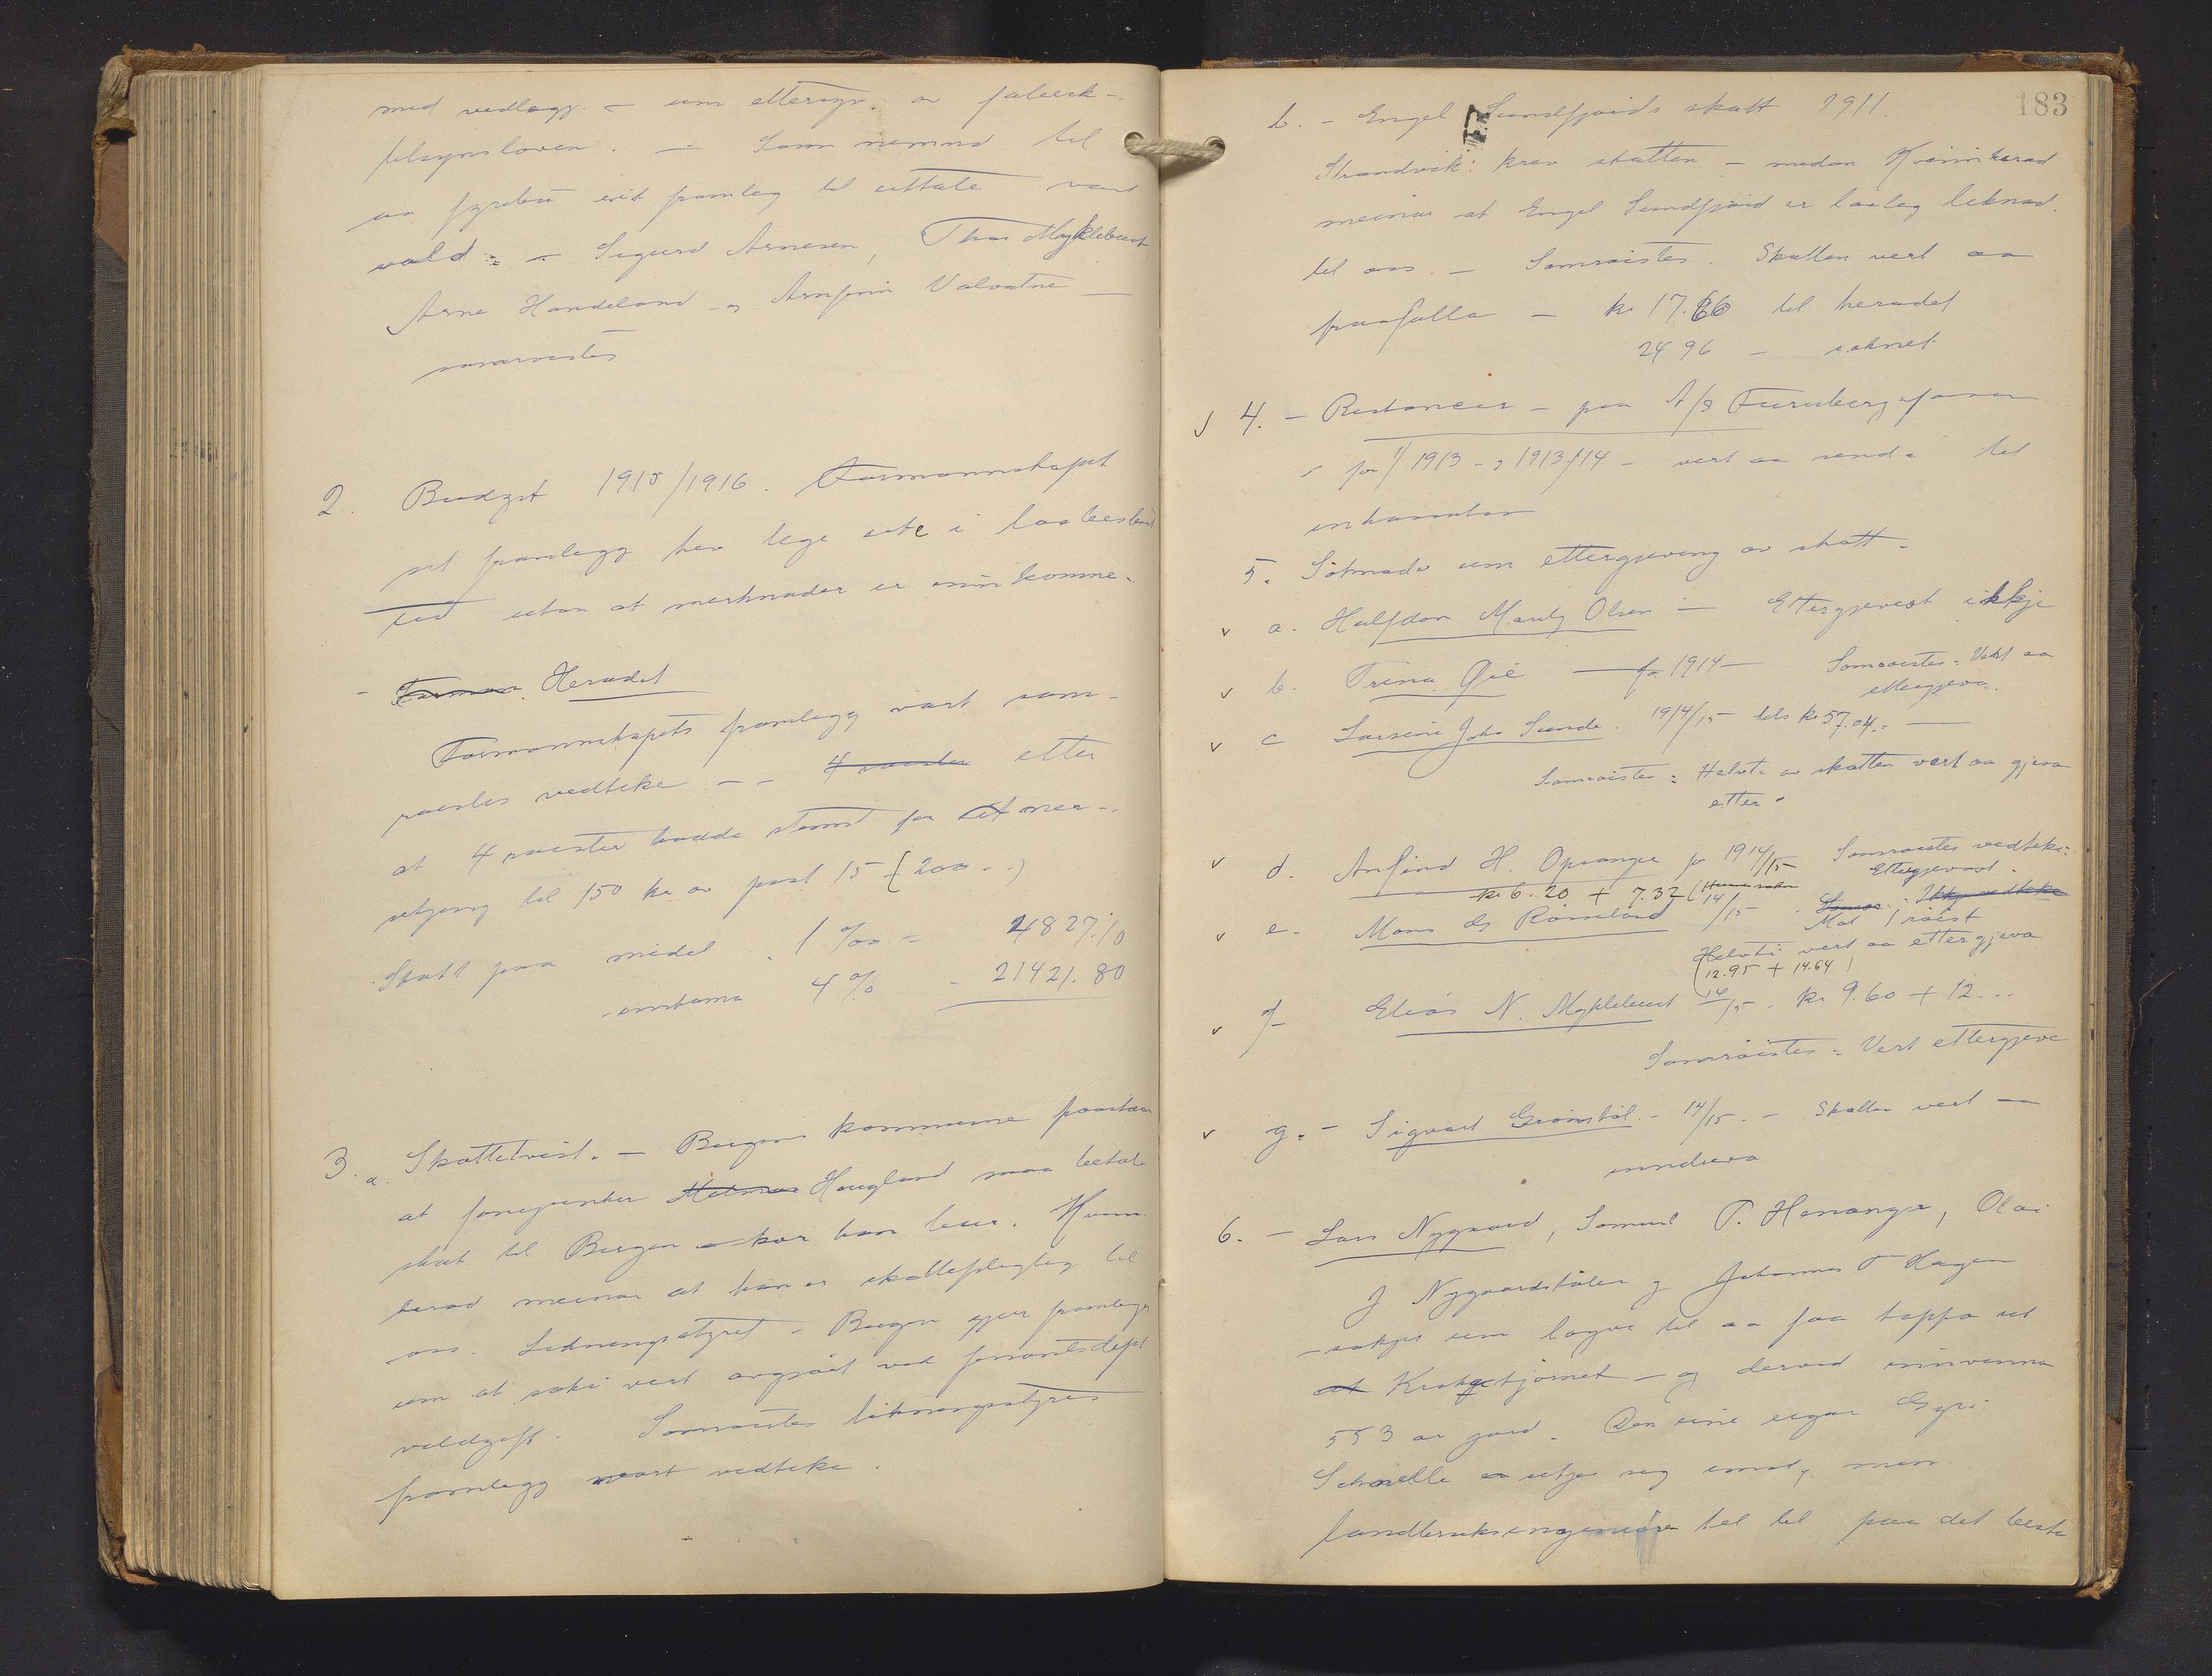 med vedlegg. – um ettersyn. av fabrik-
tilsynsloven. – Som nemnd til
aa fyrebu eit framlegg til uttale vart
vald: – Sigurd Arnesen, Thor Myklebust
Arne Handeland og Arnfinn Valvatne –
samrøistes
2. Budget 1915/1916. Formannskapet
sit framlegg hev lege ute i lovleg
tid utan at merknader er innkomne.
– Forman Heradet
Formannskapets framlegg vart sam-
røistes vedteke – – 4 røister etter
at 4 røister hadde stemt for ned-
setjing til 150 kr av post 15 (200 - -)
Skatt paa midel 1 ‰ = 4827.10
- inntoma 4 % - 21421.80
3. a. Skattetvist. – Bergens kommune paastaar
at Haugland maa betala
skat til Bergen kor han bur. Kvinn-
herad meinar at han er skatteplagtig til
oss. Likningsstyret - Bergen gjer framlegg
um at saki vert avgjort ved finantsdept
voldgift. Samrøistes likningsstyres
framlegg vart vedteke.
183
b. – Engel Sundfjords skatt 1911.
Strandvik: krev skatten – medan Kvinnherad
meinar at Engel Sundfjord er lovleg liknad.
til oss. – Samrøistes. Skatten vert aa
fraafalla – kr 17.66 til heradet
24 96 – soknet
4. – Restancer – paa A/S Furuberg
for 1/1 1913 - og 1913/14 – vert aa senda til
inkassator
5. Søknader um ettergjeving av skatt.
a. Halfdan Mauly Olsen – Ettergjevest ikkje
b. Trina Øie – for 1914 – Samrøistes: Vert aa
ettergjeva.
c Laurine Johs Sunde. 1914/15 – tils kr 57.04. –
Samrøistes: Halvti av skatten vert aa gjeva
etter.
d. Anfind H. Opsanger for 1914/15 Samrøistes vedteke:
Ettergjevast.
kr 6.20 + 7.32
e. Mons Rømsland 14/15 - Samr. Ikkje vedteke
Mot 1 røist
Helvti vert aa ettergjeva
(12.95 + 14.64)
f Elias N. Myklebust 14/15. kr 9.60 + 12...
Samrøistes: Vert ettergjeve
g. – Sigvart Grønstøl. – 14/15. – Skatten vert aa
inndriva
6. – Lars Nygaard, Samuel T. Hananger, Olai
J Nygaardstølen og Johannes T Hagen
– søkjer um løyve til aa faa tappa ut
tjørnet – og derved innvinna
553 ar jord. Den eine eigar Gyri
Schnelle set seg imot, men
landbruksingeniøren tel til paa det beste